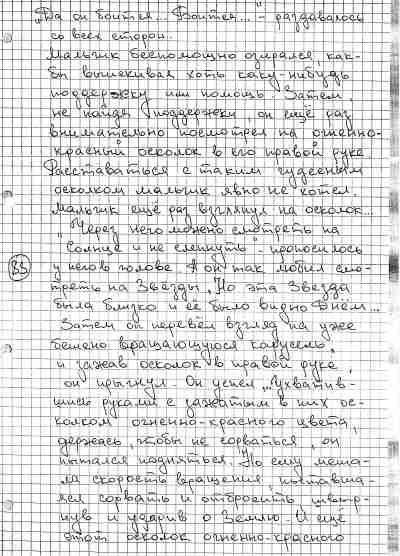 "Да он боится... Боится..." - раздавалось
со всех сторон.
Мальчик беспомощно озирался, как-
бы выискивая хоть каку-нибудь
поддержку или помощь. Затем,
не найдя поддержки, он ещё раз
внимательно посмотрел на огненно-
красный осколок в его правой руке.
Расставаться с таким чудесным
осколком мальчик явно не хотел.
Мальчик ещё раз взглянул на осколок...
"Через него можно смотреть на
Солнце и не слепнуть" - проносилось
83
у него в голове. А он так любил смо-
треть на Звёзды. Но эта Звезда
была близко и её было видно Днём...
Затем он перевёл взгляд на уже
бешено вращающуюся карусель,
и зажав осколок в правой руке,
он прыгнул. Он успел, ухватив-
шись руками с зажатым в них ос-
колком огненно-красного цвета,
держась, чтобы не сорваться, он
пытался подняться. Но ему меша-
ла скорость вращения, пытавша-
яся сорвать и отбросить швыр-
нув и ударив о Землю. И ещё
этот осколок огненно-красного